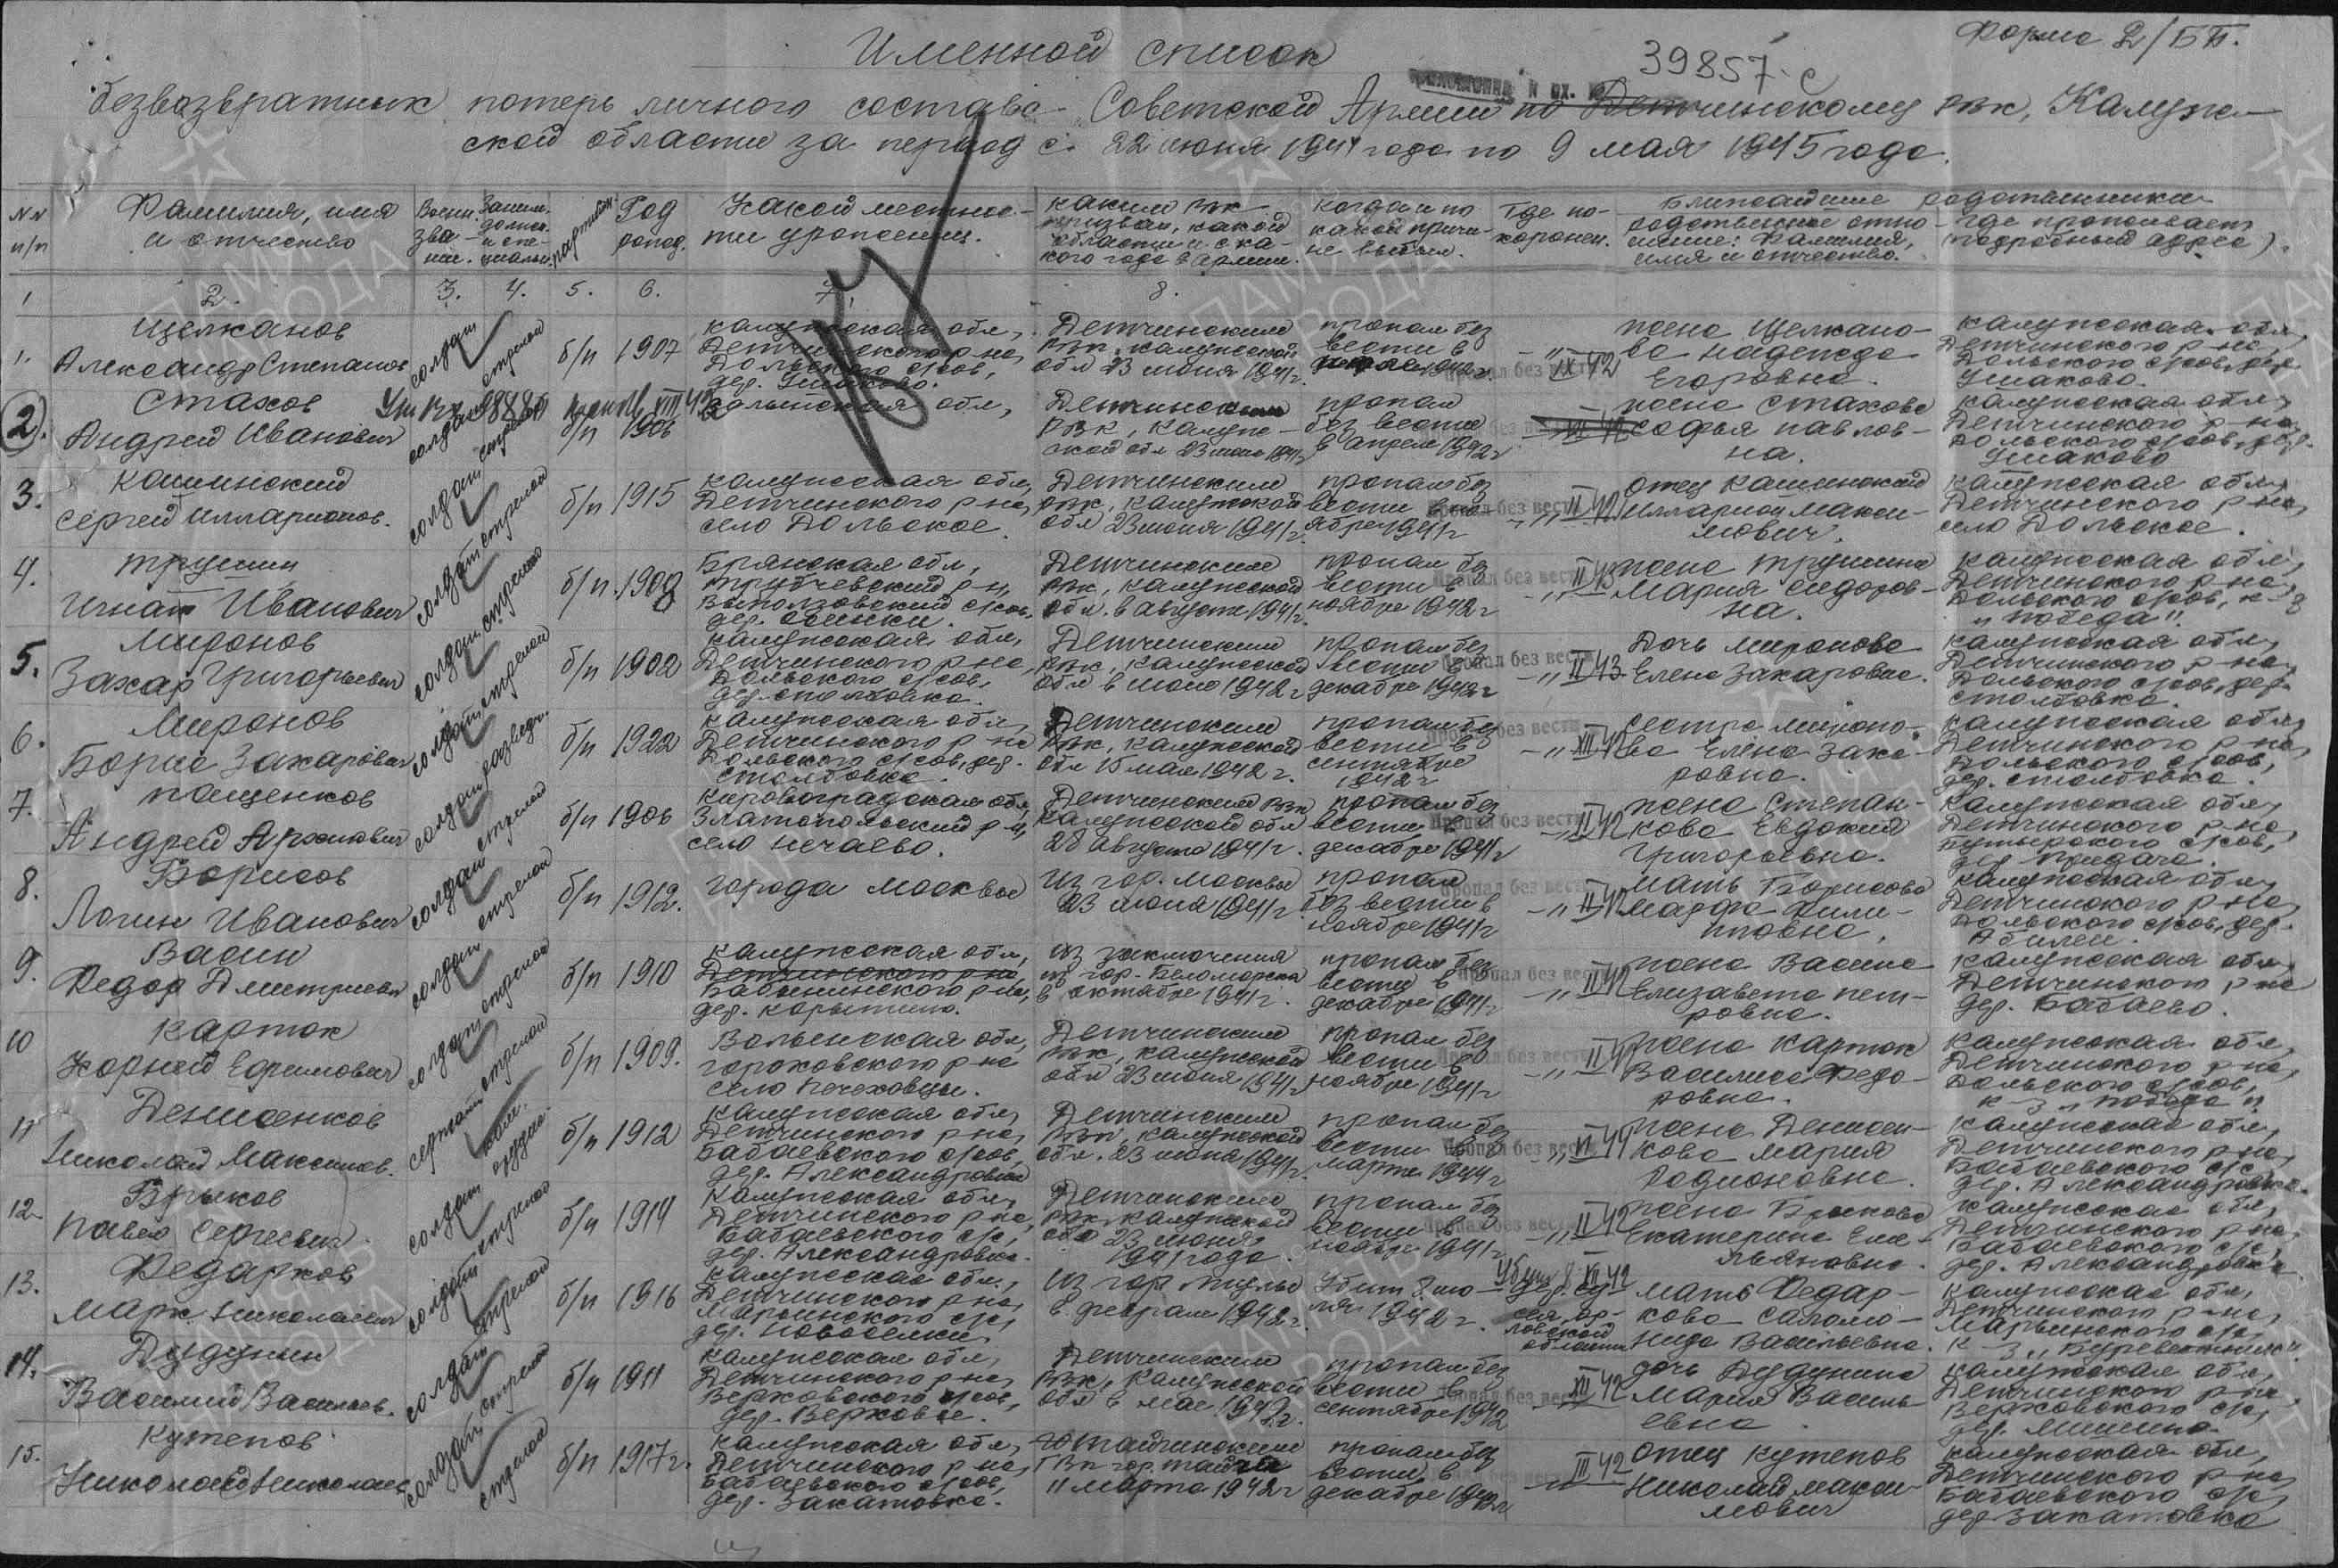 Форма 2/БП.
Именной список
39857 с
безвозвратных потерь личного состава Советской Армии по Детчинскому рвк, Калуж-
ской области за период с 22 июня 1941 года по 9 мая 1945 года.
NN п/п
Фамилия, имя и отчество
Воен. зва- ние.
Год рожд.
Какой местнос- ти уроженец.
Каким рвк призван, какой области и с ка- кого года в армии.
Когда и по какой причи- не выбыл.
Где по- хоронен.
Ближайшие родственники
родственное отно- шение: фамилия, имя и отчество.
где проживает (подробный адрес).
1 2. 3. 4. 5. 6. 7. 8.
1. Щелканов Александр Степанов
солдат стрелок
б/п 1907
Калужская обл, Детчинского р-на, Дольского с/сов, дер. Ушаково.
Детчинским рвк, Калужской обл 23 июня 1941 г.
пропал без вести в 1942 г.
IX 42
жена Щелкано- ва Надежда Егоровна.
Калужская обл, Детчинского р-на, Дольского с/сов, дер. Ушаково.
2. Стахов Андрей Иванович
солдат стрелок
б/п 1906
обл,
Детчинским рвк, Калуж- ской обл 23 июля 1941 г
пропал без вести в апреле 1942 г
жена Стахова Софья Павлов- на.
Калужская обл, Детчинского р-на, Дольского с/сов, дер. Ушаково
3. Кашинский Сергей Илларионов.
солдат стрелок
б/п 1915
Калужская обл, Детчинского р-на, село Дольское.
Детчинским рвк, Калужской обл 23 июня 1941 г.
пропал без вести в но- ябре 1941 г
II 42
отец Кашинский Илларион Макси- мович.
Калужская обл, Детчинского р-на, село Дольское.
4. Трушин Игнат Иванович
солдат стрелок
б/п. 1908
Брянская обл, Трубчевский р-н, с/сов,
Детчинским рвк, Калужской обл. в августе 1941 г.
пропал без вести в ноябре 1942 г
II 43
жена Трушина Мария Сидоров- на.
Калужская обл, Детчинского р-на, Дольского с/сов, к-з "Победа".
5. Миронов Захар Григорьевич
солдат стрелок
б/п 1902
Калужская обл, Детчинского р-на, Дольского с/сов, дер. Столбовка.
Детчинским рвк, Калужской обл в июле 1942 г
пропал без вести в декабре 1942 г
II 43
Дочь Миронова Елена Захаровна.
Калужская обл, Детчинского р-на, Дольского с/сов, дер. Столбовка.
6. Миронов Борис Захарович
солдат разведч.
б/п 1922
Калужская обл, Детчинского р-на Дольского с/сов, дер. Столбовка.
Детчинским рвк, Калужской обл 15 мая 1942 г.
пропал без вести в сентябре 1942 г
XII 42
сестра Мироно- ва Елена Заха- ровна.
Калужская обл, Детчинского р-на, Дольского с/сов, дер. Столбовка.
7. Пащенков Андрей
солдат стрелок
б/п 1906
Кировоградская обл, Златопольский р-н, село Нечаево.
Детчинским рвк Калужской обл 28 августа 1941 г.
пропал без вести в декабре 1941 г
II 42
жена Степан- кова Евдокия Григорьевна.
Калужская обл, Детчинского р-на, с/сов, дер.
8. Борисов Логин Иванович
солдат стрелок
б/п 1912.
города Москвы
Из гор. Москвы 23 июня 1941 г.
пропал без вести в ноябре 1941 г
II 42
мать Борисова Марфа Фили- пповна.
Калужская обл, Детчинского р-на, Дольского с/сов, дер.
9. Васин Федор Дмитриевич
солдат стрелок
б/п 1910
Калужская обл, Детчинского р-на, Бабынинского р-на, дер. Корытино.
из заключения из гор. Беломорска в октябре 1941 г.
пропал без вести в декабре 1941 г
II 42
жена Васина Елизавета Пет- ровна.
Калужская обл, Детчинского р-на дер. Бабаево.
10 Карток Корней Ефимович
солдат стрелок
б/п 1909.
Волынская обл, Гороховского р-на село Печехвосты.
Детчинским рвк, Калужской обл 23 июня 1941 г.
пропал без вести в ноябре 1941 г
жена Карток Василиса Федо- ровна.
Калужская обл, Детчинского р-на, Дольского с/сов, к-з "Победа"
11 Денисенков Николай Максимов.
сержант ком. орудия.
б/п 1912
Калужская обл, Детчинского р-на, Бабаевского с/сов, дер. Александровка
Детчинским рвк, Калужской обл. 23 июня 1941 г.
пропал без вести в марте 1944 г
VI 44
жена Денисен- кова Мария Родионовна.
Калужская обл, Детчинского р-на, Бабаевского с/с, дер. Александровка.
12. Брыков Павел Сергеевич
солдат стрелок
б/п 1914
Калужская обл, Детчинского р-на, Бабаевского с/с, дер. Александровка.
Детчинским рвк, Калужской обл 23 июня 1941 года
пропал без вести в ноябре 1941 г
II 42
жена Брыкова Екатерина Еме- льяновна.
Калужская обл, Детчинского р-на, Бабаевского с/с, дер. Александровка
13. Федарков Марк Николаевич
солдат стрелок
б/п 1916
Калужская обл., Детчинского р-на, Марьинского с/с, дер. Новоселки
Из гор. Тулы в феврале 1942 г.
Убит 8 ию- ля 1942 г.
орловской области
мать Федар- кова Саломо- нида Васильевна.
Калужская обл, Детчинского р-на, Марьинского с/с, к-з "Буревестник".
14. Дудунин Василий Васильев.
солдат стрелок
б/п 1911
Калужская обл, Детчинского р-на, Верховского с/сов, дер. Верховье.
Детчинским рвк, Калужской обл в мае 1942 г.
пропал без вести в сентябре 1942
XII 42
дочь Дудунина Мария Василь- евна.
Калужская обл, Детчинского р-на, Верховского с/с, дер. Мишино.
15. Кутепов Николай Николаев
солдат стрелок
б/п 1917 г.
Калужская обл, Детчинского р-на, Бабаевского с/сов, дер. Закатовка.
11 марта 1942 г
пропал без вести в декабре 1942 г
III 42
отец Кутепов Николай Макси- мович
Калужская обл, Детчинского р-на, Бабаевского с/с, дер Закатовка